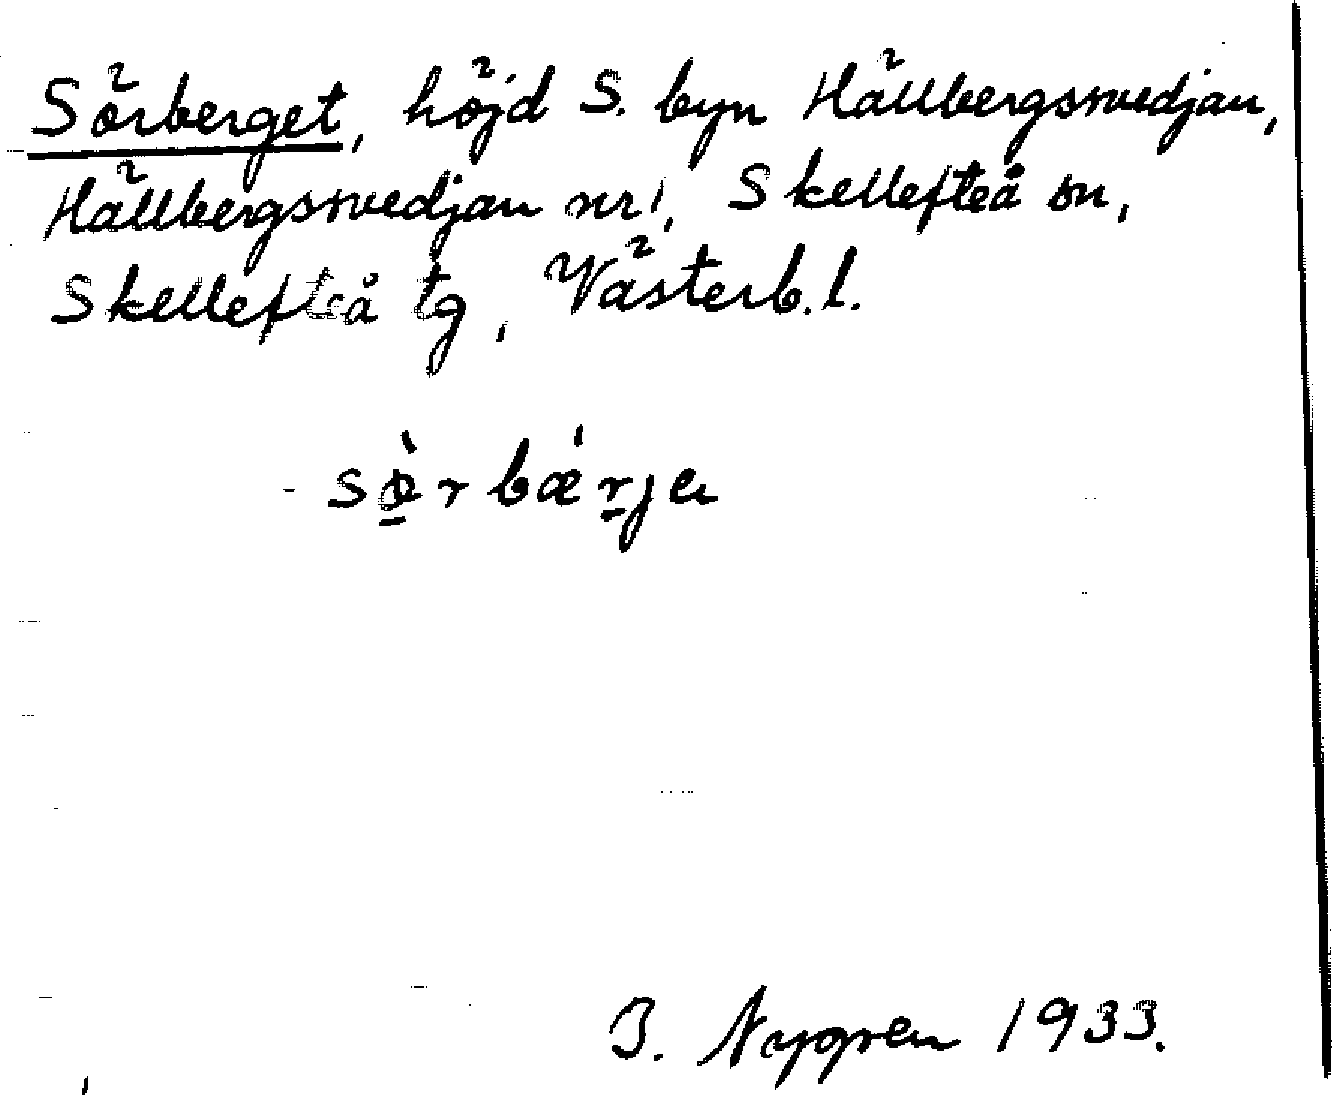 Sörberget, höjd S. byn Hällbergsvedjan,
Hällbergsvedjan nr 1, Skellefteå sn,
Skellefteå tg, Västerb. l.
sø̠̀rbǽr̠ja
J. Nygren 1933.